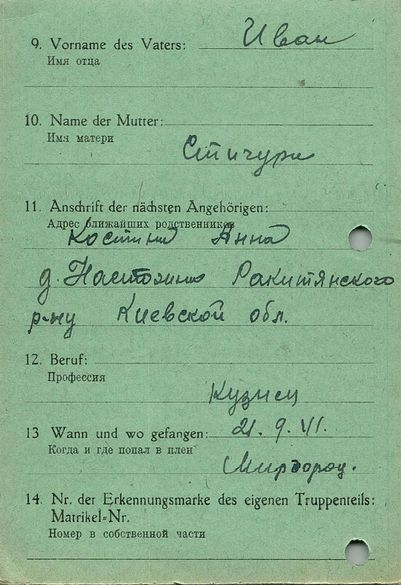 9. Vorname des Vaters: Иван
Имя отца
10. Name der Mutter:
Имя матери
Стичури
11. Anschrift der nächsten Angehörigen:
Адрес ближайших родственников
Анна
д. Ракитянского
р-ну Киевской обл.
12. Beruf:
Профессия
Кузнец
13 Wann und wo gefangen: 21. 9. 41.
Когда и где попал в плен
Миргород.
14. Nr. der Erkennungsmarke des eigenen Truppenteils:
Matrikel-Nr.
Номер в собственной части